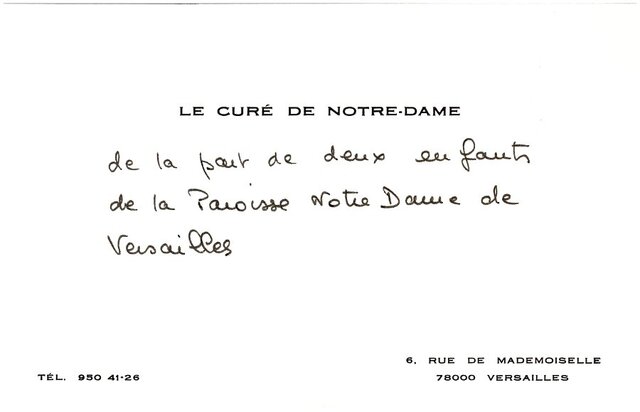 LE CURÉ DE NOTRE-DAME
de la part de deux enfants
de la Paroisse Notre Dame de
Versailles
6, RUE DE MADEMOISELLE
TÉL. 950 41-26
78000 VERSAILLES